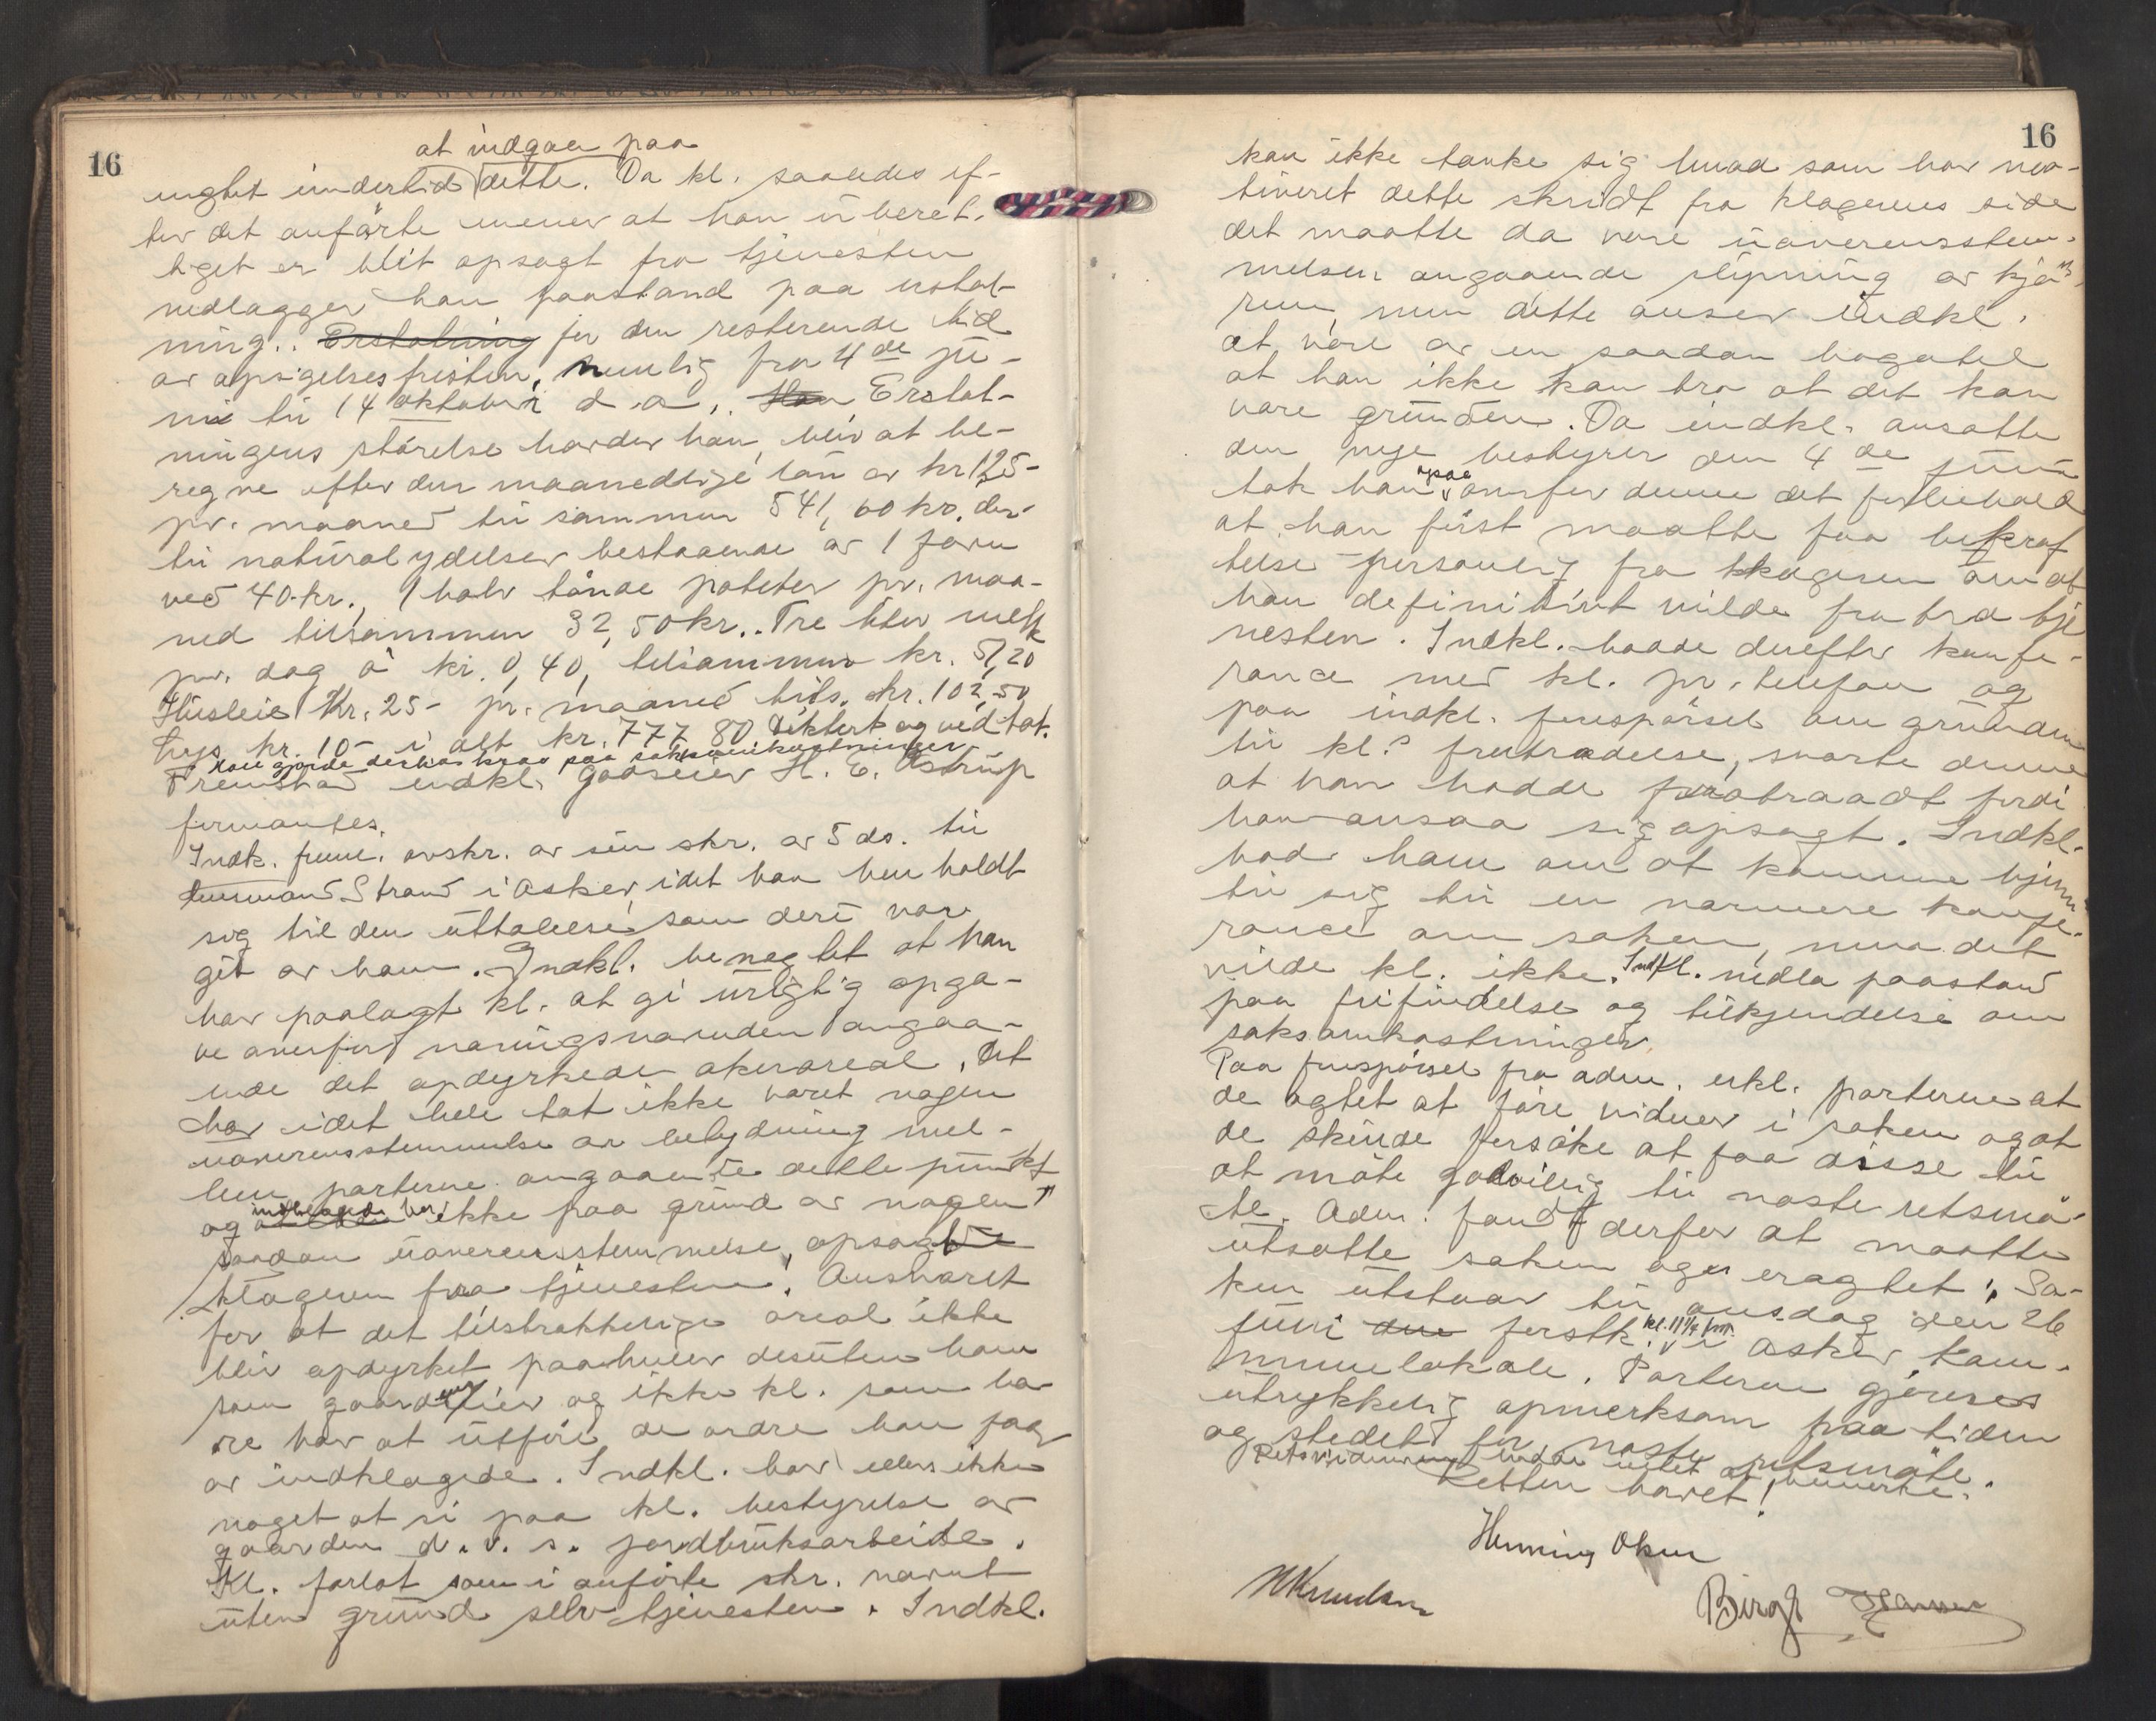 16
at indgaa paa
imidlertid dette. Da kl. saaledes ef-
ter det anførte mener at han uberet-
tiget er blit opsagt fra tjenesten
nedlægger han paastand paa erstat-
ning.. Erstatning for den resterende tid
av opsigelsesfristen, nemlig fra 4de ju-
ni til 14 oktober d.a.. Han Erstat-
ningens størelse hævder han blir at be-
regne efter den maanedlige løn av kr 125-
pr. maaned til sammen 541,60 kr. der-
til naturalydelser bestaaende av 1 favn
ved 40 kr., 1 halv tønde poteter pr. maa-
ned tilsammen 32,50 kr.. Tre liter melk
pr. dag à kr. 0,40, tilsammen kr. 51,20
Husleie Kr. 25- pr. maaned tils. kr. 102,50
lys kr. 10- i alt kr. 777,80 Diktert og vedtat.
Han gjorde derhos krav paa saksomkostninger
Fremstod indkl. godseier H. E. Astrup
formantes.
Indk. freml. avskr. av sin skr. av 5 ds. til
lensmand Strand i Asker, idet han henholdt
sig til den uttalelse som deri var
git av ham. Indkl. benegtet at han
har paalagt kl. at gi urigtig opga-
ve overfor næringsnævnden angaa-
ende det opdyrkede akerareal. Det
har i det hele tat ikke været nogen
uoverensstemmelse av betydning mel-
lem parterne angaaende dette punkt
og indklagede har ikke paa grund av nogen
saadan uoverensstemmelse, opsagt
klageren fra tjenesten. Ansvaret
for at det tilstrækkelige areal ikke
blir opdyrket paahviler desuten ham
som gaardeier og ikke kl. som ba-
re har at utføre de ordre han faar
av indklagede. Indkl. har ellers ikke
noget at si paa kl. bestyrelse av
gaarden d.v.s. jordbruksarbeide.
Kl. forlot som i anførte skr. nævnt
uten grund selv tjenesten. Indkl.
16
kan ikke tænke sig hvad som har mo-
tiveret dette skridt fra klagerens side
det maatte da være uoverensstem-
melsen angaaende slipning av kjø-
rene, men dette anser indkl.
at være av en saadan bagatel
at han ikke kan tro at det kan
være grunden. Da indkl. ansatte
den nye bestyrer den 4de juni
tok han ogsaa overfor denne det forbehold
at han først maatte faa bekræf
telse personlig fra klageren om at
han definitivt vilde fratræ tje
nesten. Indkl. hadde derefter konfe-
rance med kl. pr. telefon og
paa indkl. forespørsel om grunden
til kl.s fratrædelse, svarte denne
at han hadde fratraadt fordi
han ansaa sig opsagt. Indkl.
bad ham om at komme hjem
til sig til en nærmere konfe-
rance om saken, men det
vilde kl. ikke. Indkl. nedla paastand
paa frifindelse og tilkjendelse om
saksomkostninger.
Paa forespørsel fra adm. erkl. parterne at
de agtet at føre vidner i saken og at
de skulde forsøke at faa disse til
at møte godvillig til næste retsmø-
te. Adm. fandt derfor at maatte
utsatte saken og er eragtet: Sa-
ken utstaar til onsdag den 26
juni due førstk. kl. 11 1/4 fm. i Asker kom-
munelokale. Parterne gjøres
utrykkelig opmerksom paa tiden
og stedet for næste retsmøte.
Retsvidnerne hadde intet at bemerke.
Retten hævet!
Henning Oken
N Knudsen
Birgt Hansen